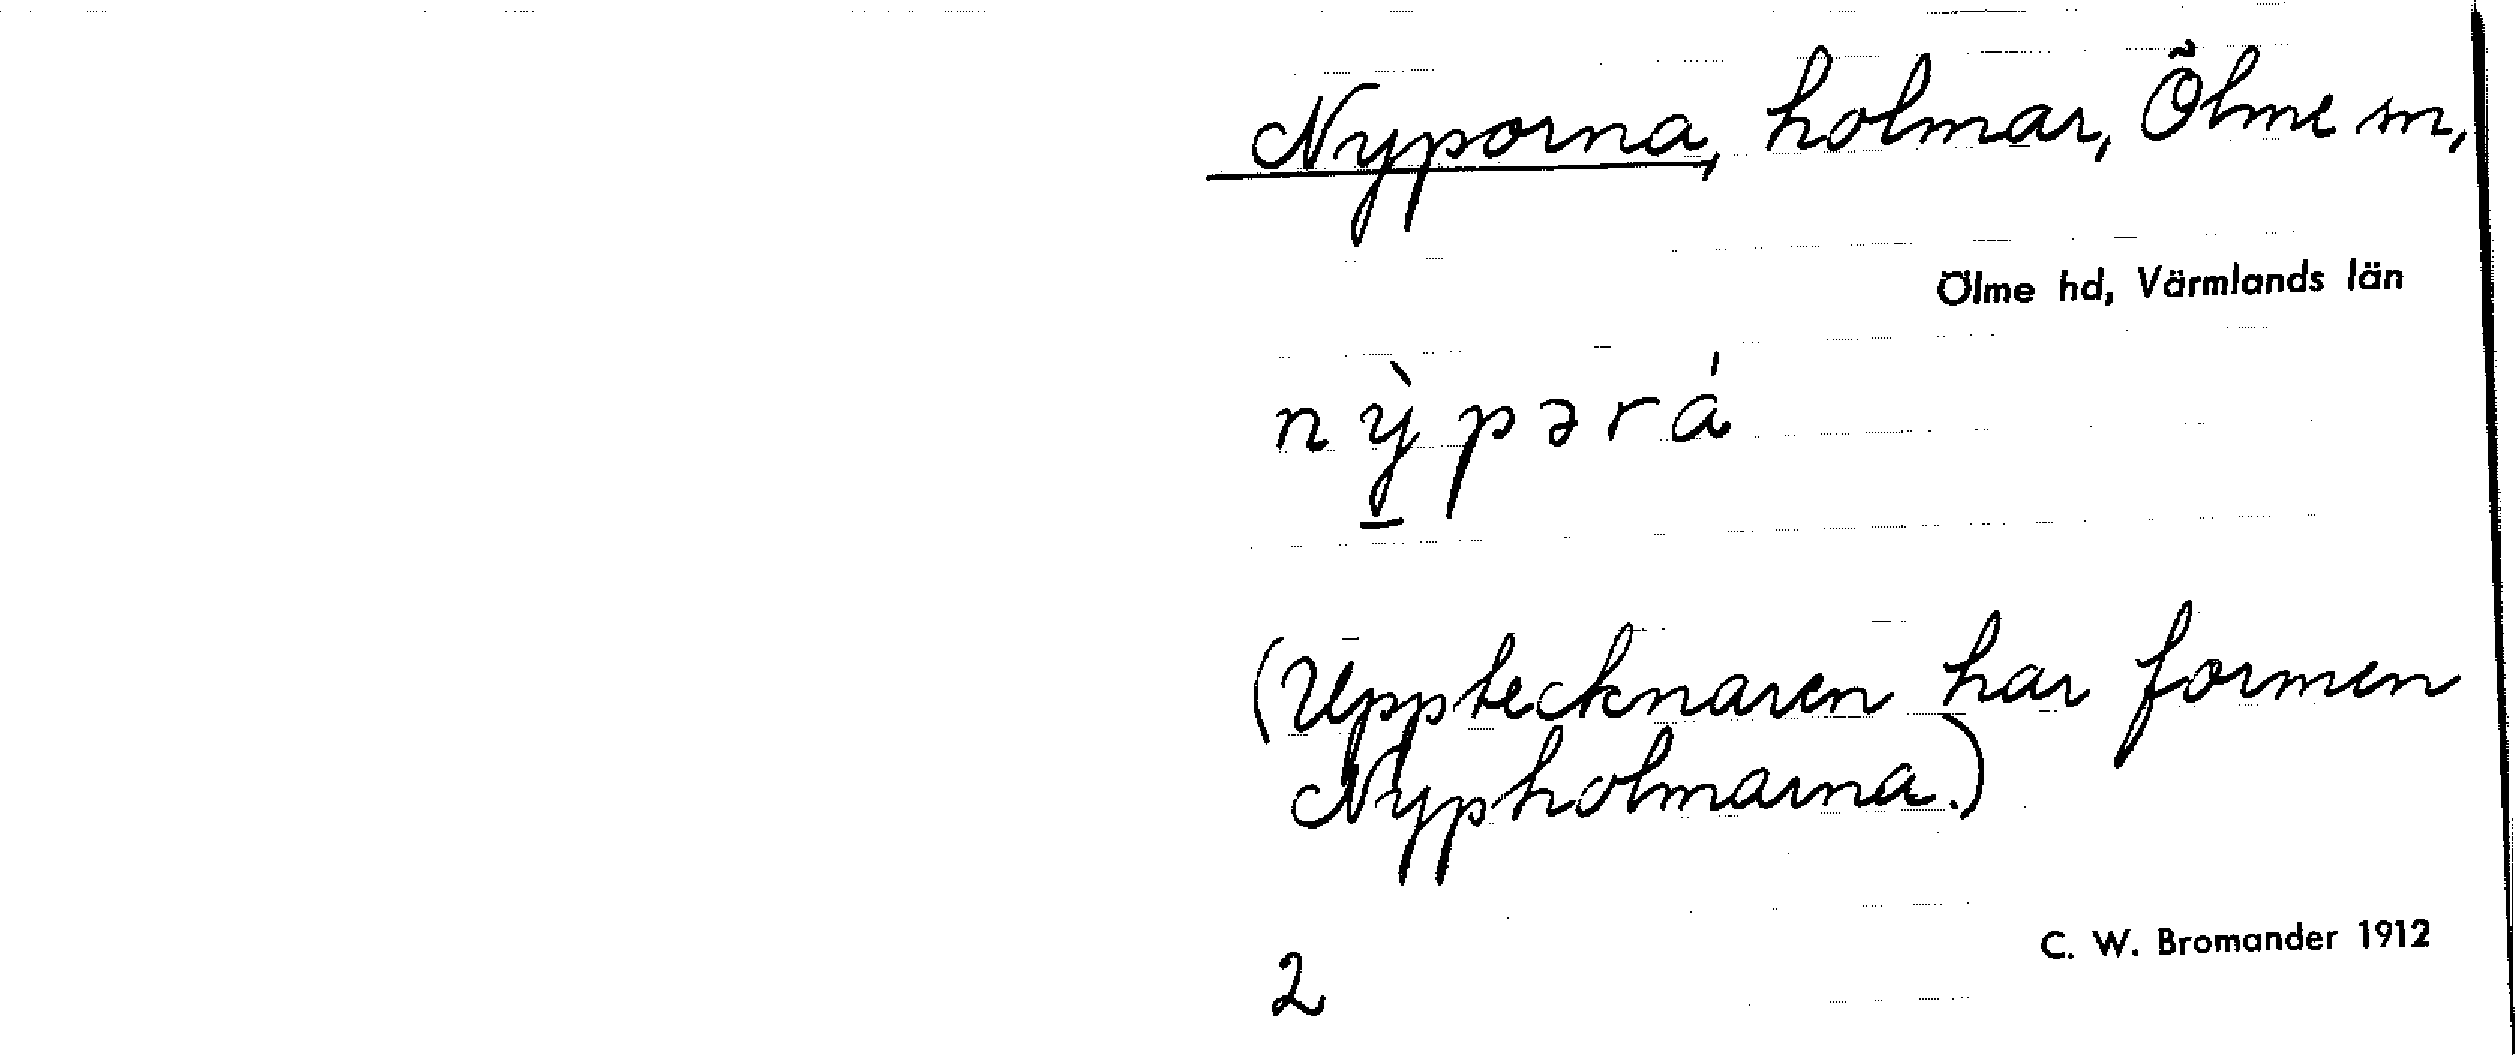 Nyporna, holmar, Ölme sn,
Ölme hd, Värmlands län
nỳpərá
(Upptecknaren har formen
Nypholmarna.)
C. W. Bromander 1912
2